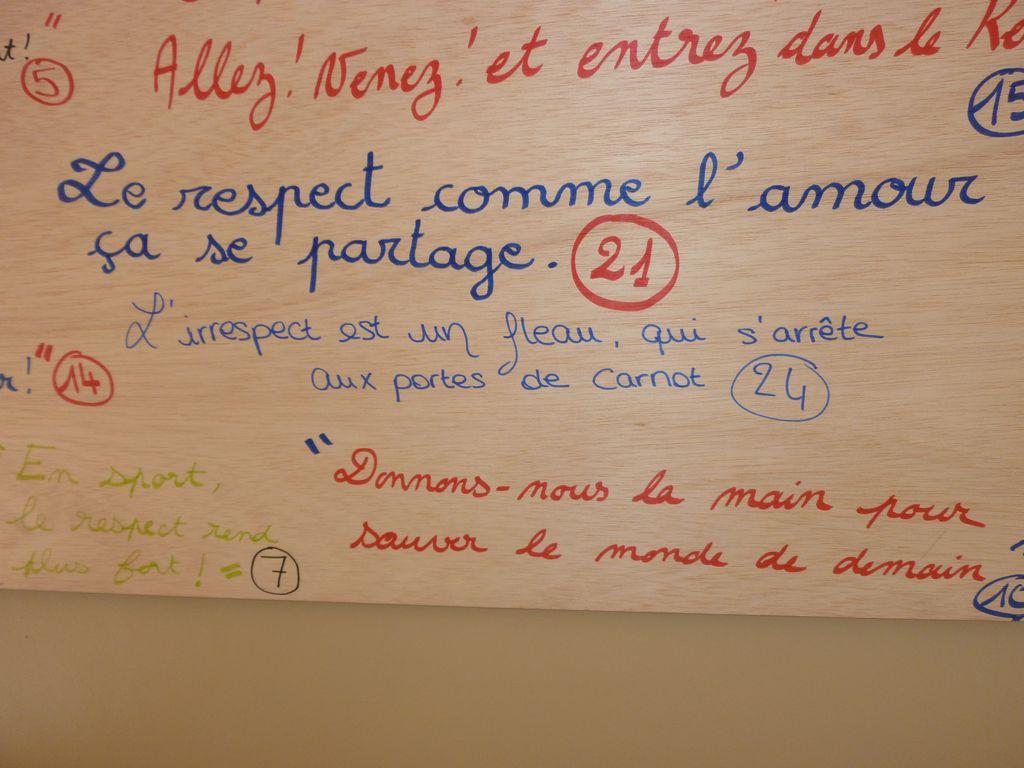 "
5
Allez! Venez! et entrez dans le
15
Le respect comme l'amour
ça se partage. 21
L'irrespect est un fleau, qui s'arrête
!" 14
aux portes de Carnot 24
En sport,
le respect rend
plus fort! = 7
"Donnons-nous la main pour
sauver le monde de demain
10